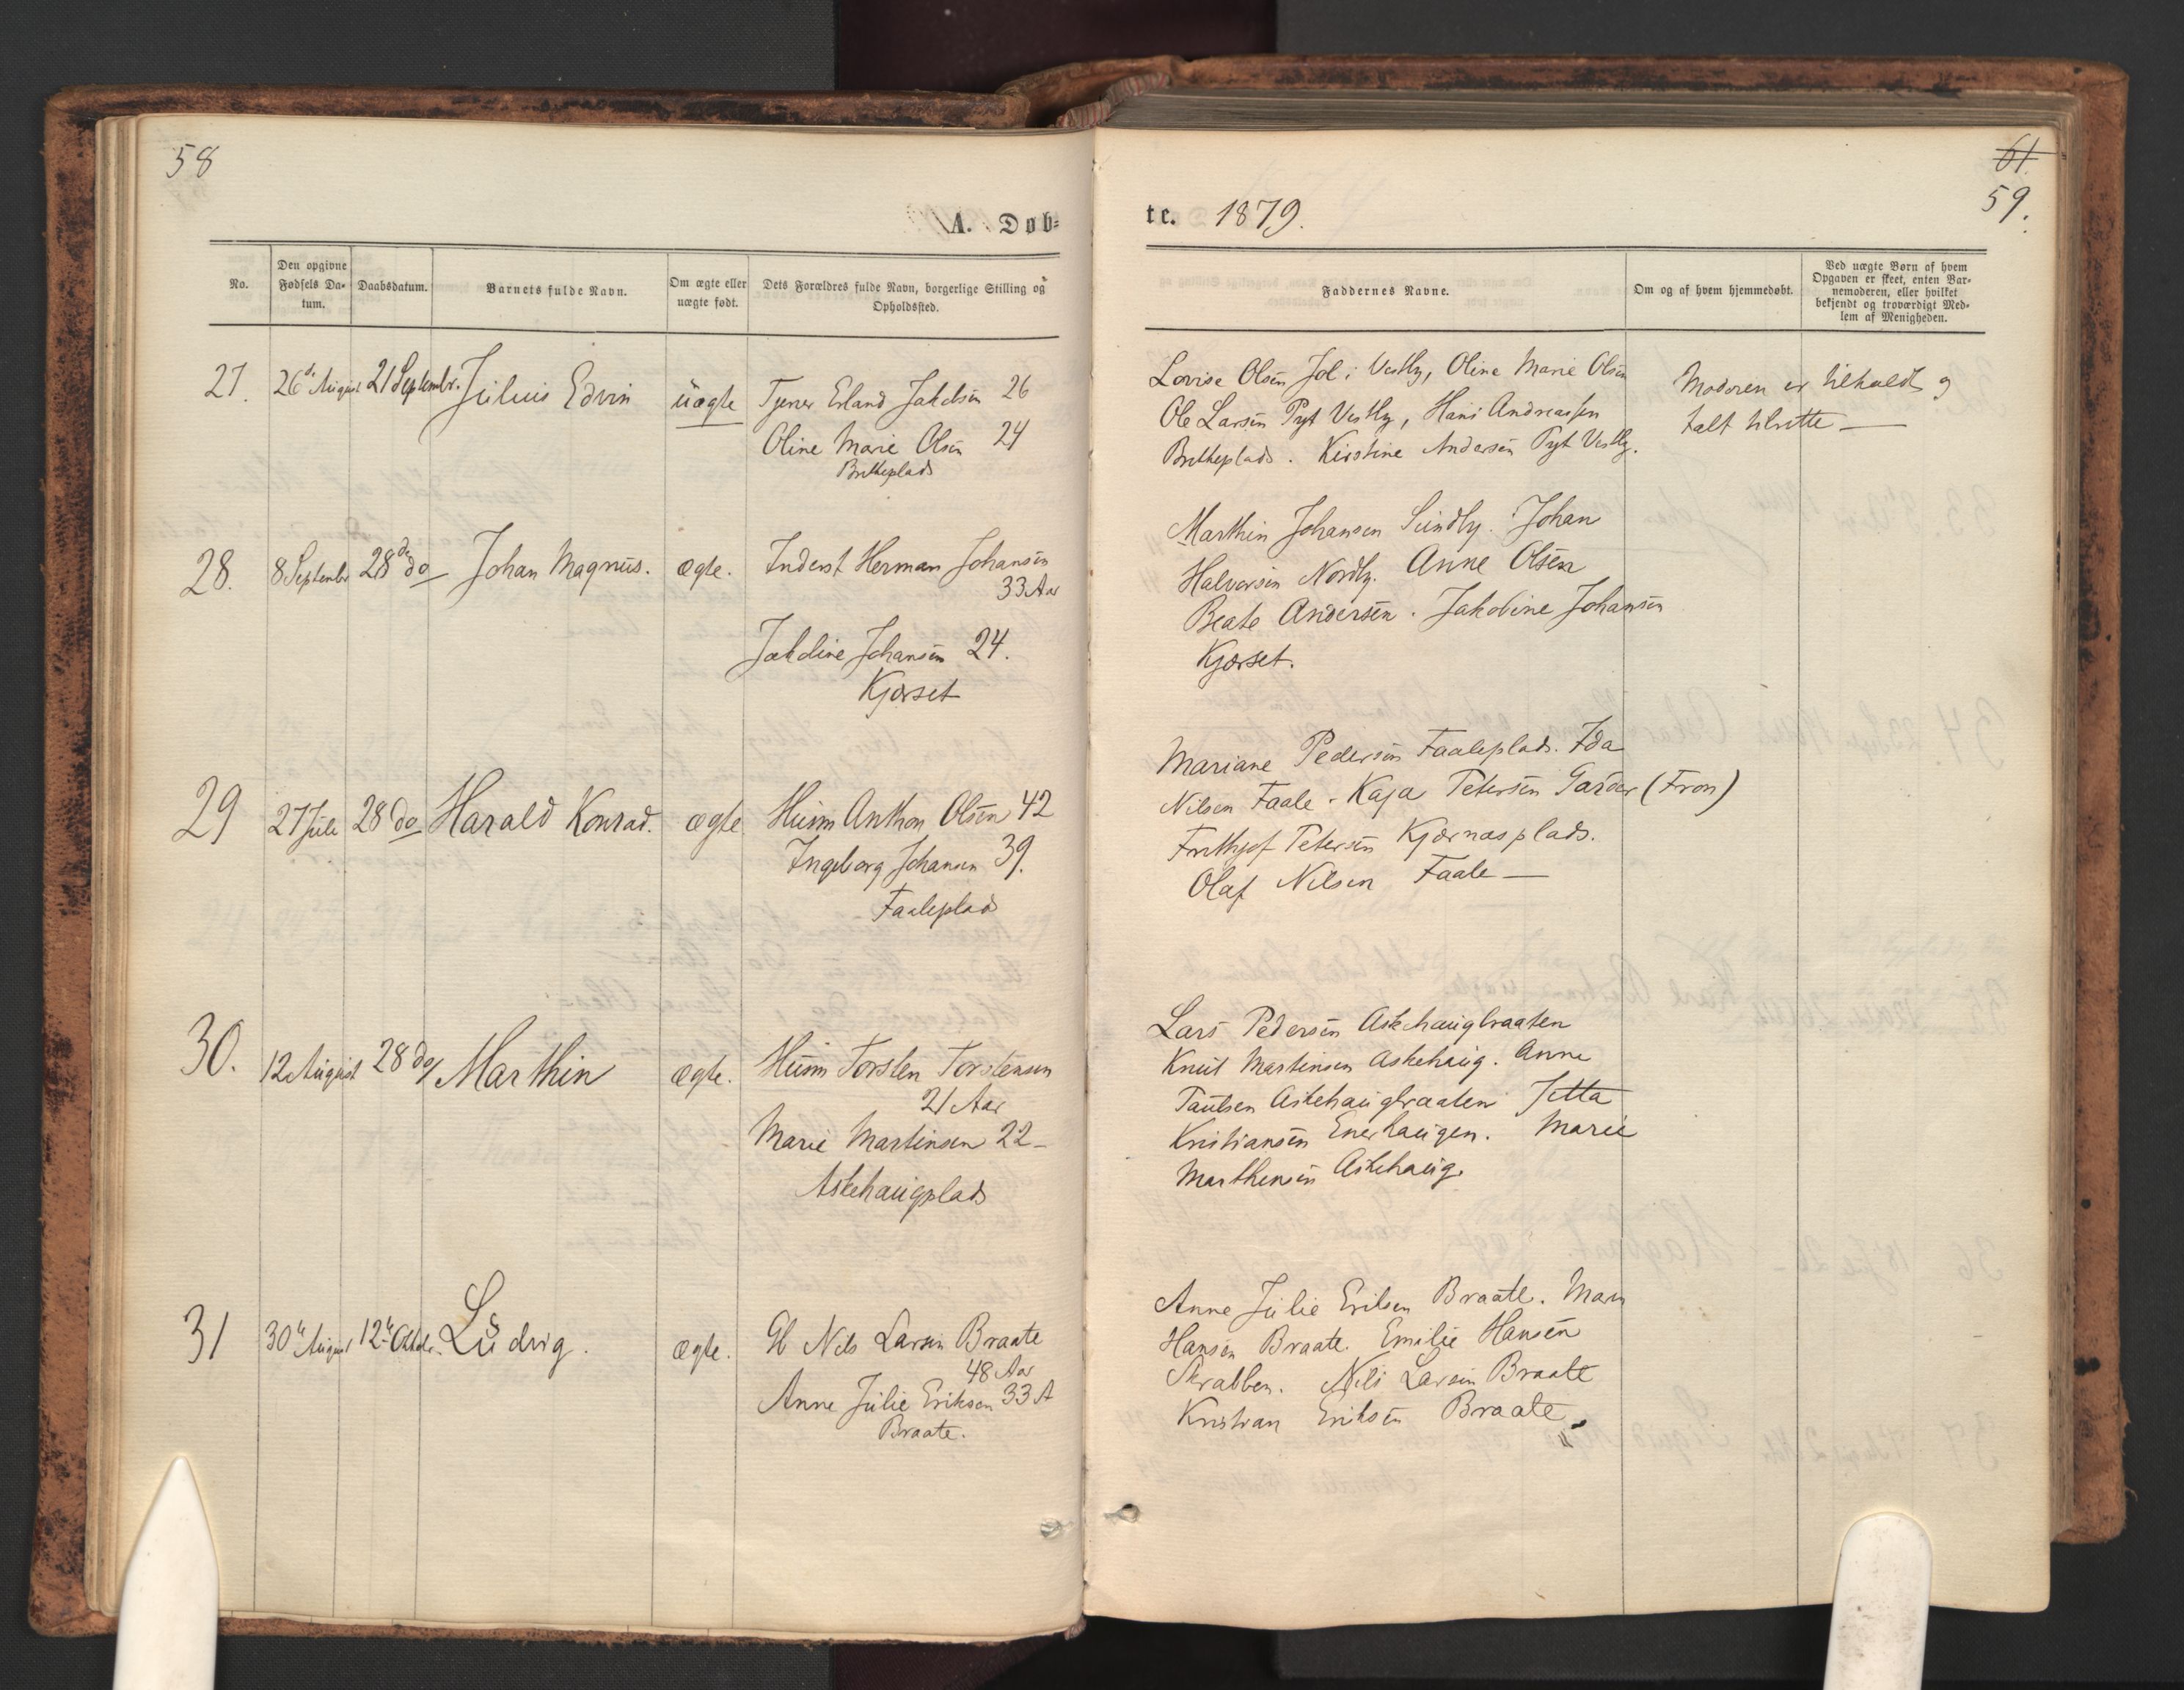 58
A. Døb=
No.
Den opgivne Fødsels Da=tum.
Daabsdatum.
Barnets fulde Navn.
Om ægte eller uægte født.
Dets Forældres fulde Navn, borgerlige Stilling og Opholdssted.
27. 26de August 21 Septembr. Julius Edvin uægte Tjener Erland Jakobsen 26
Oline Marie Olsen 24
Brekkeplads
28. 8 Septembr 28de do Johan Magnus. ægte. Inderst Herman Johansen
33 Aar
Jakobine Johansen 24.
Kjærset
29 27 Juli 28 do Harald Konrad. ægte Husm Anthon Olsen 42
Ingeborg Johansen 39.
Faaleplads
30. 12 August 28 do/ Marthin ægte. Husm Torsten Torstensen
21 Aar
Marie Martinsen 22 –
Askehaugplads
31 30te August 12te Oktobr. Ludvig. ægte. Gb Nils Larsen Braate
48 Aar
Anne Julie Eriksen 33 A
Braate.
61.
59.
te. 1879.
Faddernes Navne.
Om og af hvem hjemmedøbt.
Ved uægte Børn af hvem
Opgaven er skeet, enten Bar=
nemoderen, eller hvilket
bekjendt og troværdigt Med=
lem af Menigheden.
Lovise Olsen Vestby, Oline Marie Olsen
Ole Larsen Vestby, Hans Andreassen
Brekkeplads. Kirstine Andersen Vestby.
Moderen er tilholdt og
talt tilrette —
Marthin Johansen Sundby. Johan
Halvorsen Nordby. Anne Olsen
Beate Andersen. Jakobine Johansen
Kjærset.
Mariane Pedersen Faaleplads. Ida
Nilsen Faale. Kaja Petersen Garder (Fron)
Frithjof Petersen Kjærnæsplads.
Olaf Nilsen Faale —
Lars Pedersen Askehaugbraaten
Knut Martinsen Askehaug. Anne
Paulsen Askehaugbraaten Jetta
Kristiansen Enerhaugen. Marie
Marthinsen Askehaug.
Anne Julie Eriksen Braate. Maren
Hansen Braate. Emilie Hansen
Skrabben. Nils Larsen Braate
Kristian Eriksen Braate.